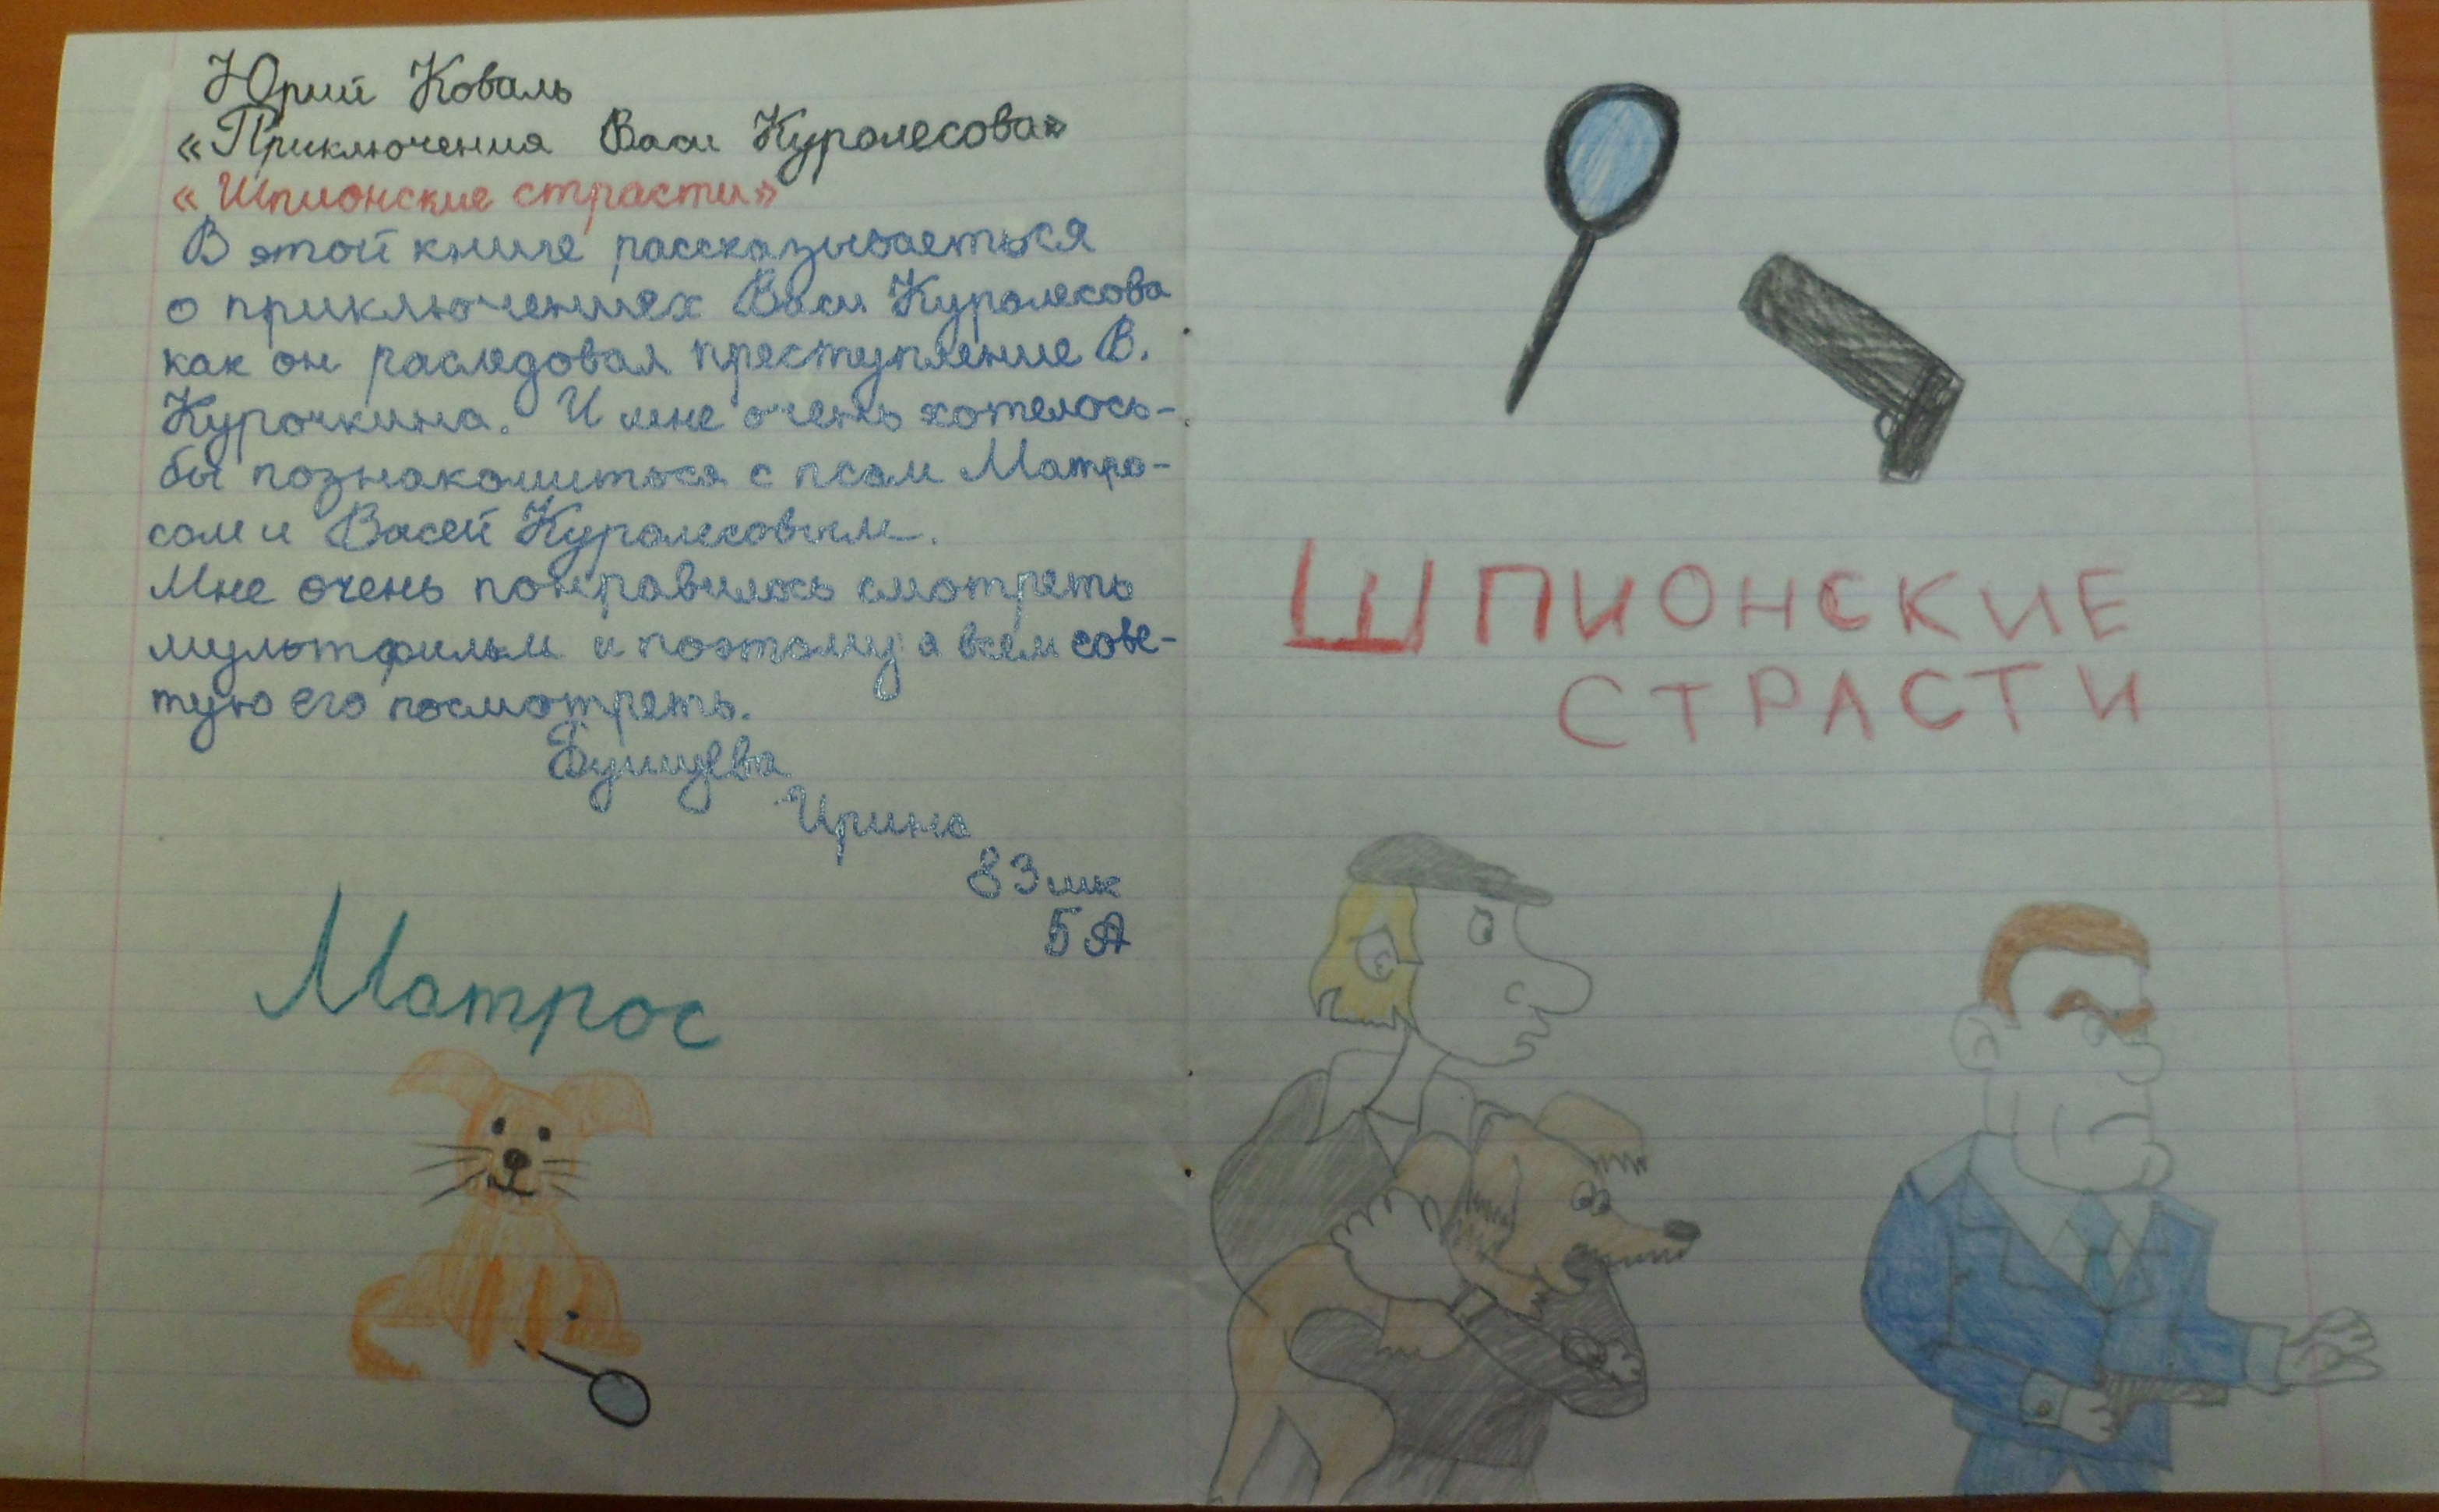 Юрий Коваль
«Приключения Васи Куролесова»
«Шпионские страсти»
В этой книге рассказываеться
о приключениях Васи Куролесова
как он раследовал преступление В.
Курочкина. И мне очень хотелось-
бы познакомиться с псом Матро-
сом и Васей Куролесовым.
Мне очень понравилось смотреть
мультфильм и поэтому я всем сове-
тую его посмотреть.
Бушуева
Ирина
83 шк
5 А
Матрос
ШПИОНСКИЕ
СТРАСТИ